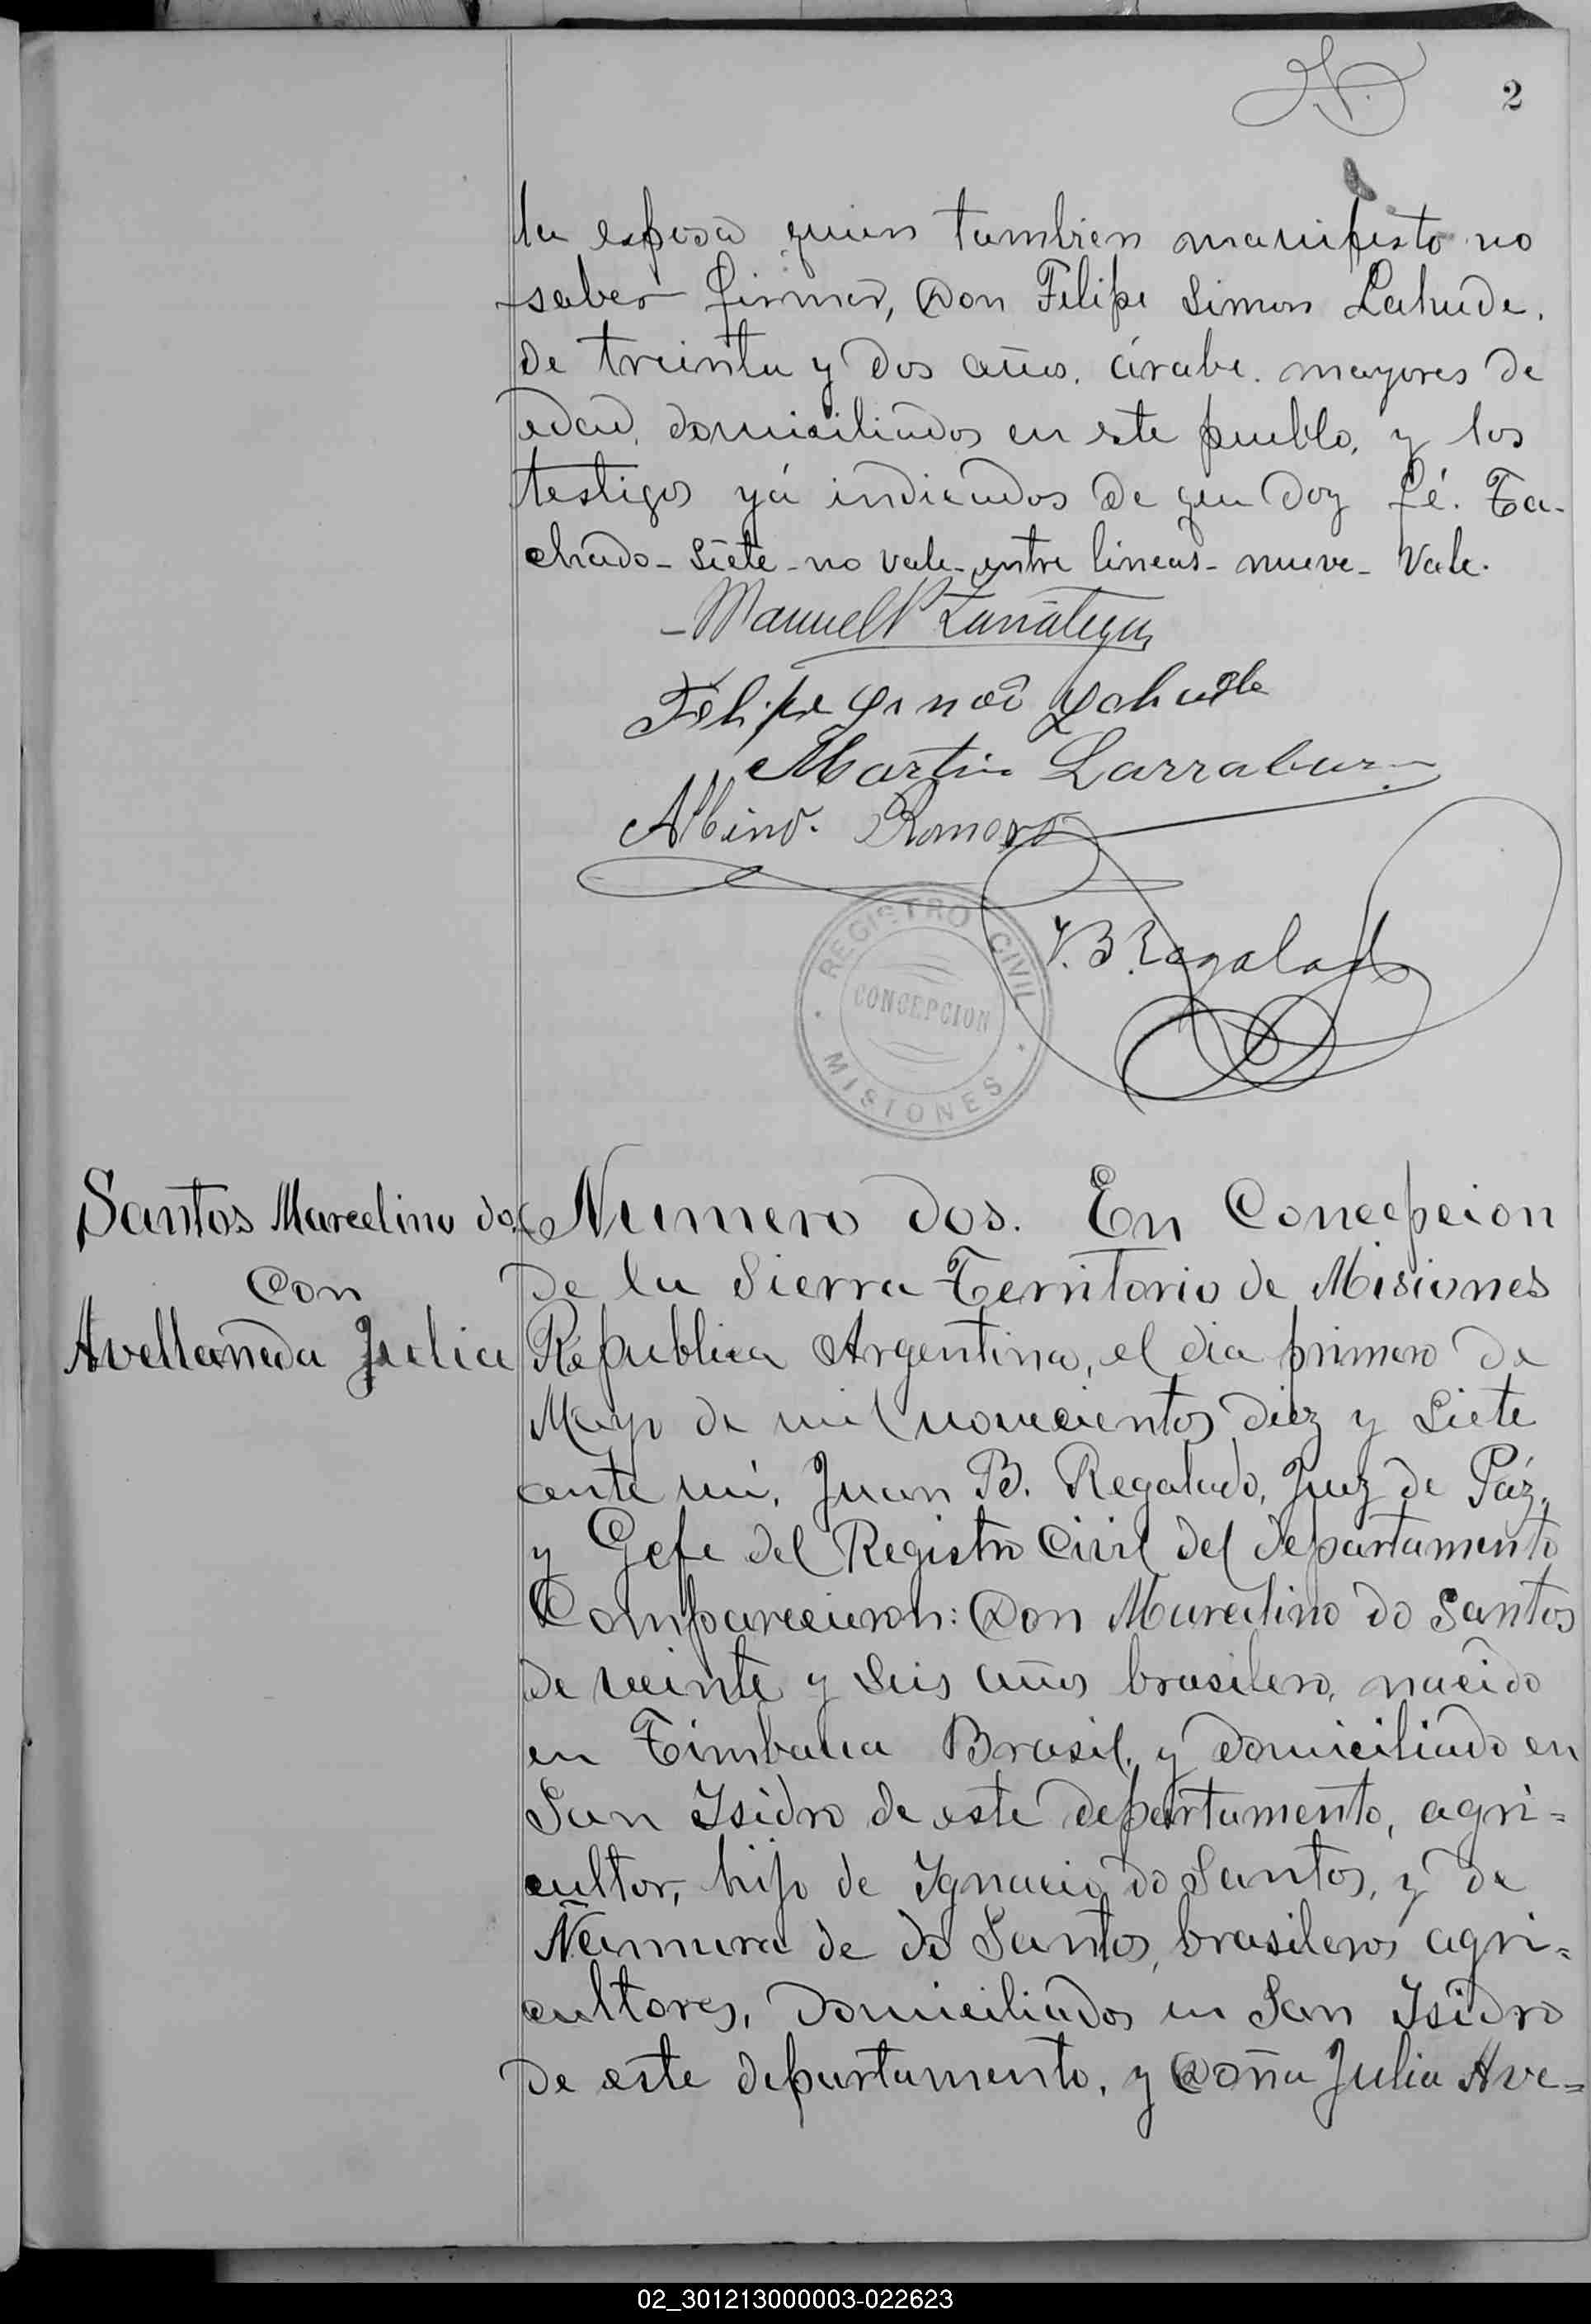 2
la esposa quien tambien manifesto no
saber firmar, Don Felipe Simon Lahude,
de treinta y dos años, árabe, mayores de
edad, domiciliados en este pueblo, y los
testigos yá indicados de que doy fé. Ta-
chado - siete - no vale - entre lineas - nueve - Vale.
Manuel
Felipe Lahude
Martin
Albino Romero
J. B. Regalado
REGISTRO CIVIL
CONCEPCION
MISIONES
Santos Marcelino do
con
Avellaneda Julia
Numero dos. En Concepcion
de la Sierra Territorio de Misiones
Republica Argentina, el dia primero de
Mayo de mil novecientos diez y siete
ante mi, Juan B. Regalado, Juez de Páz,
y Gefe del Registro Civil del departamento
Comparecieron: Don Marcelino do Santos
de veinte y seis años brasilero, nacido
en Brasil, y domiciliado en
San Isidro de este departamento, agri=
cultor, hijo de Ignacio do Santos, y de
de do Santos, brasileros agri=
cultores, domiciliados en San Isidro
de este departamento, y Doña Julia Ave=
02_301213000003-022623